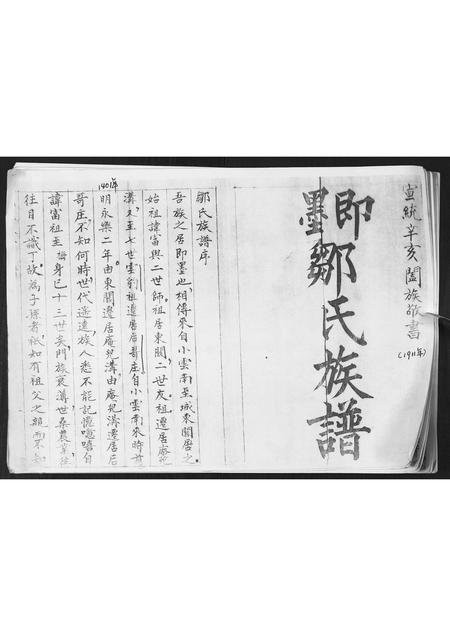 宣統辛亥闔族敬書
(1911年)
即墨鄒氏族譜
鄒氏族譜序
吾族之居即墨也相傳來自小雲南至城東關居之
始祖諱富與二世師祖居東關二世友祖遷居庵兒
溝久至七世雲豹祖遷居后哥庄自小雲南來時前
1401年
明永樂二年由東關遷居庵兒溝由庵兒溝遷居后
哥庄不知何時世代遙遠族人悉不能記憶噫嘻自
諱富祖至梅身已十三世矣門族衰溝世桑農業往
往目不識丁故為子孫者祇知有祖父之親而不知